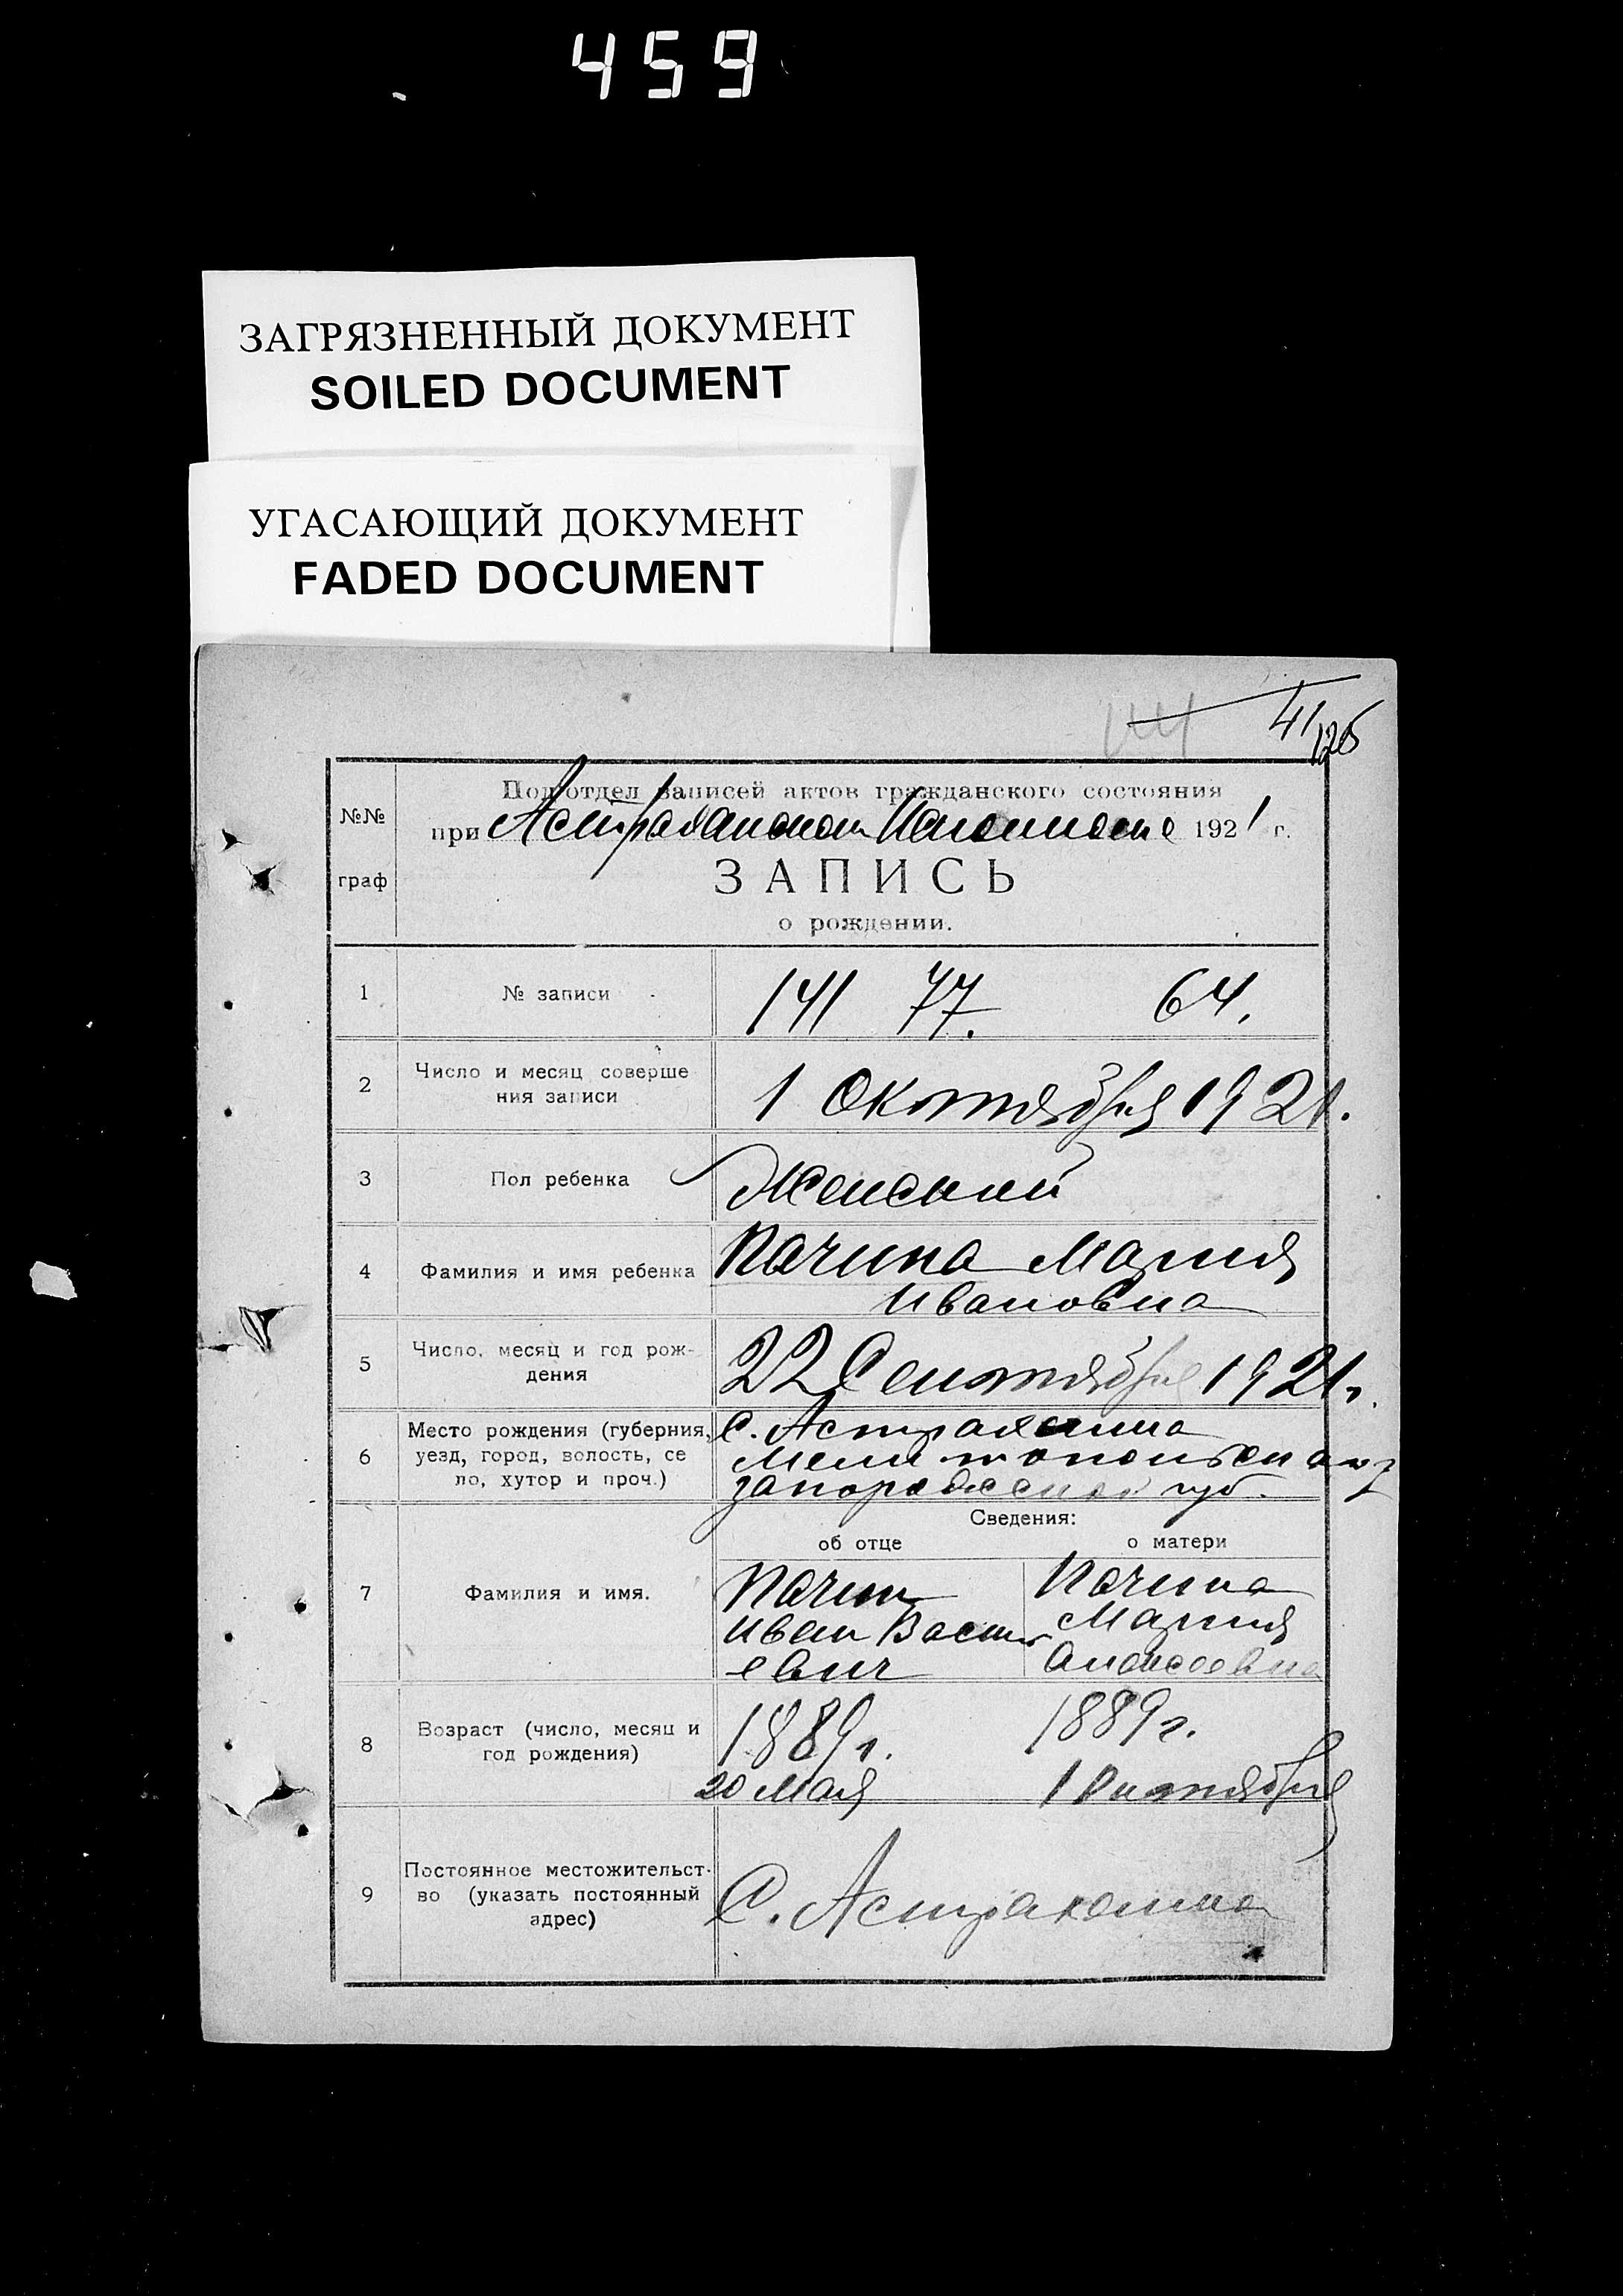 459
ЗАГРЯЗНЕННЫЙ ДОКУМЕНТ
SOILED DOCUMENT
УГАСАЮЩИЙ ДОКУМЕНТ
FADED DOCUMENT
41
126
№№ граф
Подотдел записей актов гражданского состояния
при Астраханском 1921 г.
ЗАПИСЬ
о рождении.
1 № записи 141 77. 64.
2 Число и месяц соверше
ния записи
1 Октября 1921.
3 Пол ребенка Женский
4 Фамилия и имя ребенка
Пачина Мария
Ивановна
5 Число, месяц и год рож-
дения
22 Сентября 1921 г.
6 Место рождения (губерния,
уезд, город, волость, се
ло, хутор и проч.)
С. Астраханка
Мелитопольск
запорожской губ.
Сведения:
об отце о матери
7 Фамилия и имя.
Пачин
Иван Васил
евич
Пачина
Мария
Алексеевна
8 Возраст (число, месяц и
год рождения)
1889 г.
20 Мая
1889 г.
1 Октября
9 Постоянное местожительст-
во (указать постоянный
адрес)
С. Астраханка